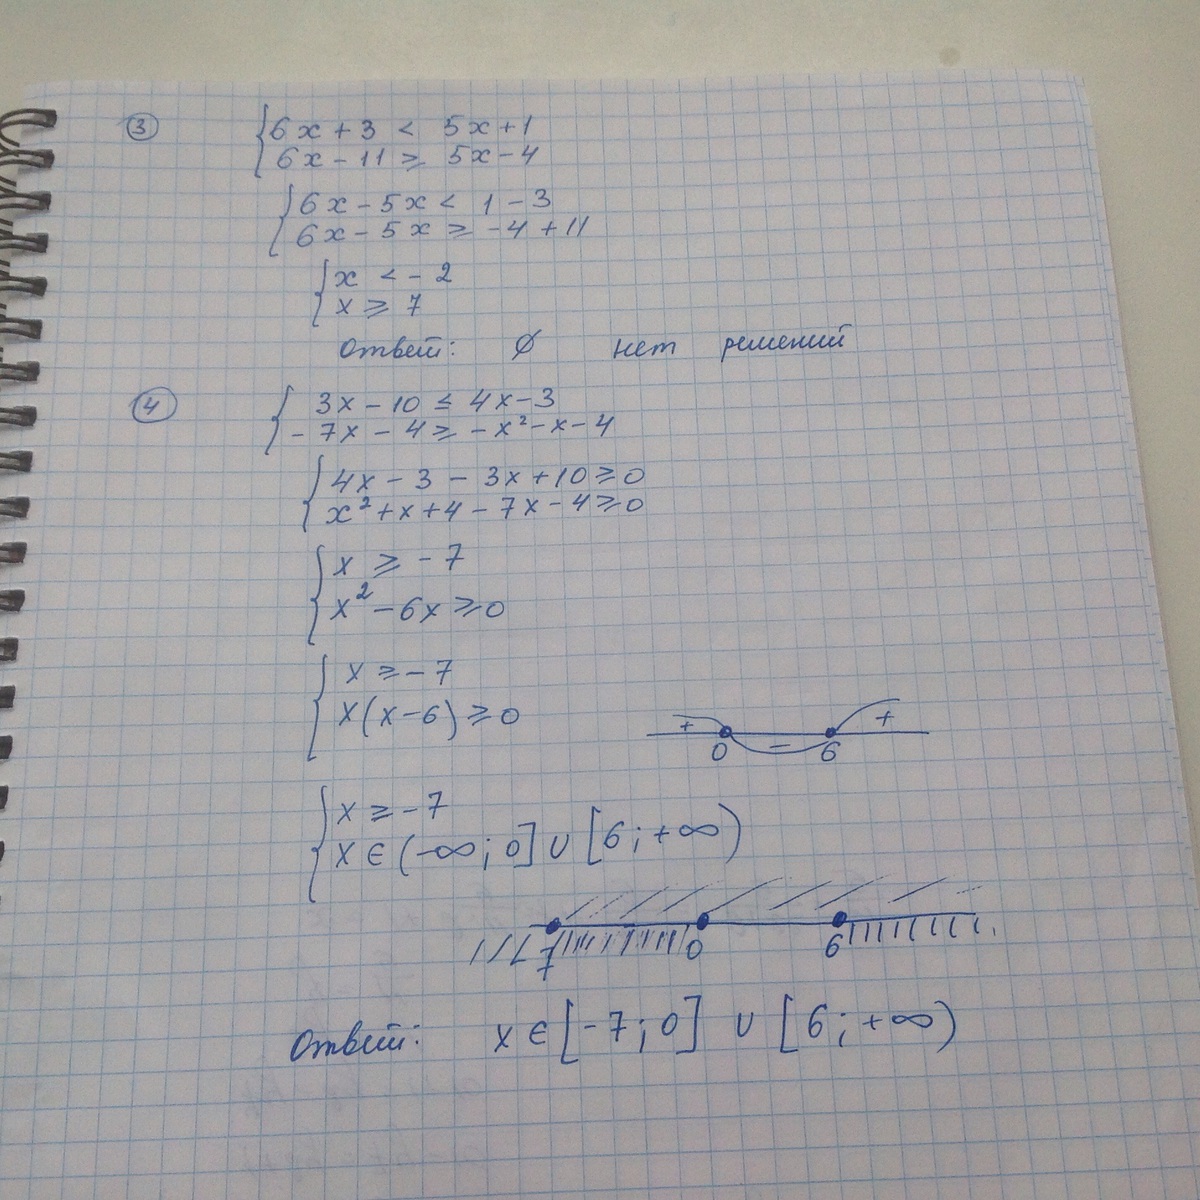 3
6x + 3 < 5x + 1
6x - 11 ≥ 5x - 4
6x - 5x < 1 - 3
6x - 5x ≥ -4 + 11
x < -2
x ≥ 7
Ответ: ∅ нет решений
4
3x - 10 ≤ 4x - 3
-7x - 4 ≥ -x² - x - 4
4x - 3 - 3x + 10 ≥ 0
x² + x + 4 - 7x - 4 ≥ 0
x ≥ -7
x² - 6x ≥ 0
x ≥ -7
x(x - 6) ≥ 0
+ - +
0 6
x ≥ -7
x ∈ (-∞; 0] ∪ [6; +∞)
-7 0 6
Ответ: x ∈ [-7; 0] ∪ [6; +∞)